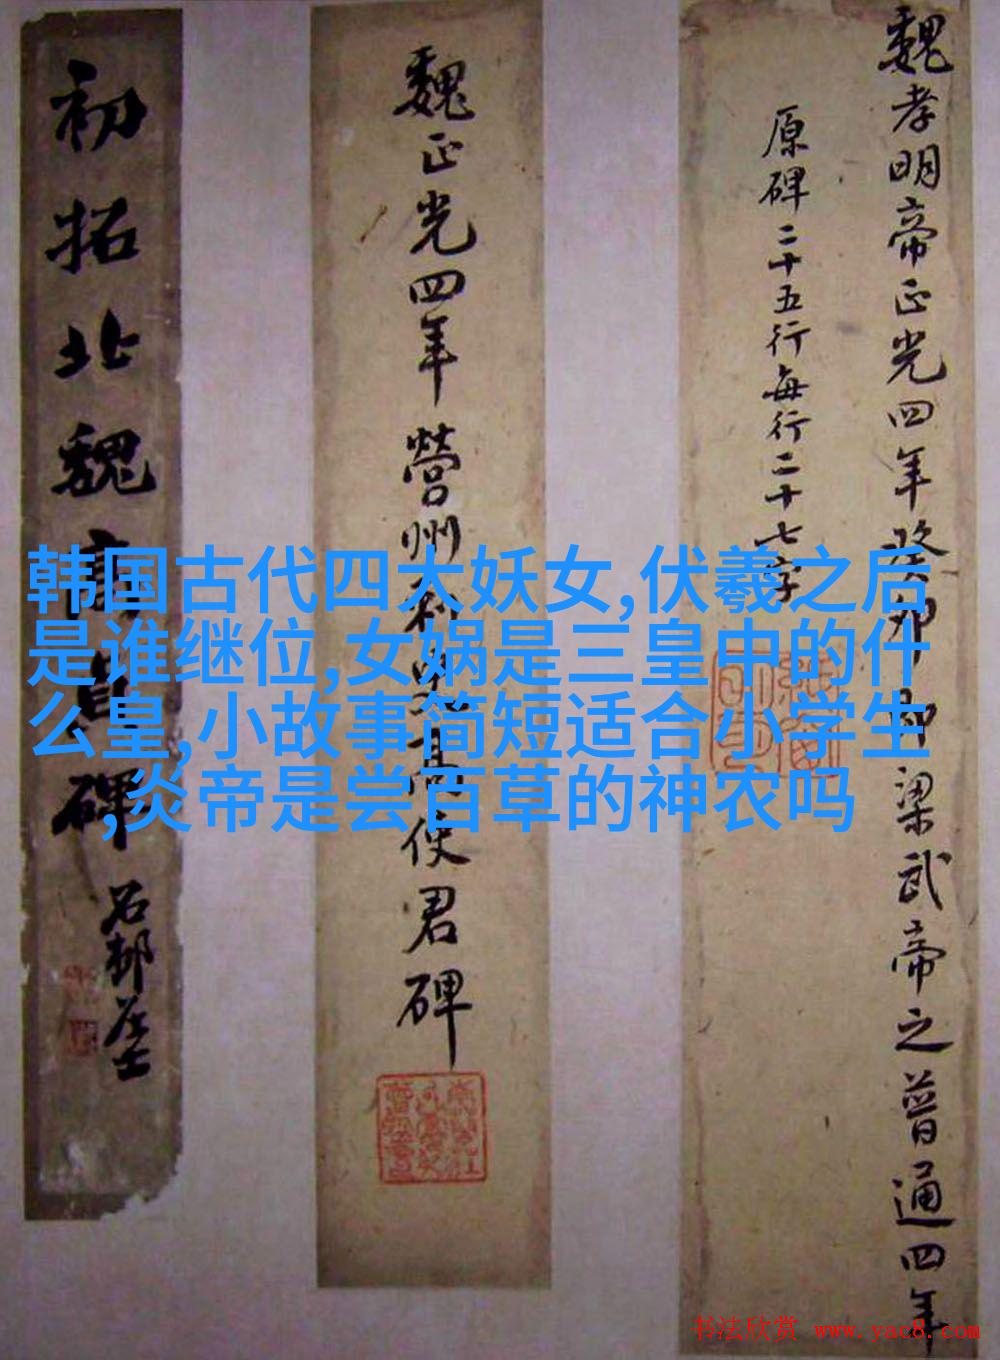 魏孝明帝正光四年癸卯即梁武帝之普通四年
原碑二十五行每行二十七字
魏正光四年營州刺史高使君碑
初拓北魏高貞碑
石邨居士
韩国古代四大妖女,伏羲之后
是谁继位,女娲是三皇中的什
么皇,小故事简短适合小学生
,炎帝是尝百草的神农吗
书法欣赏 www.yac8.com